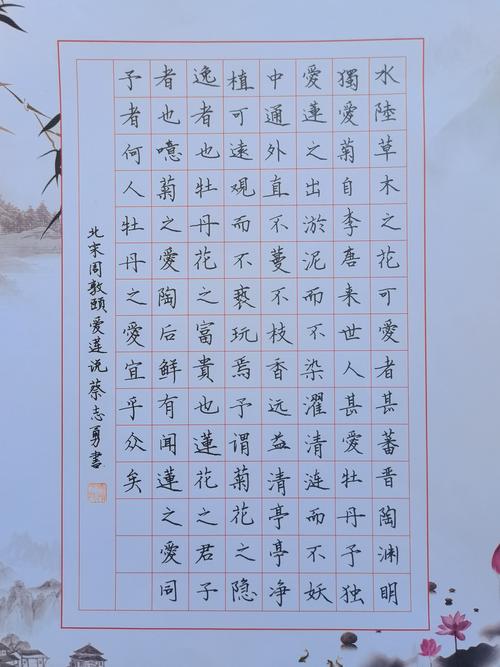 水陸草木之花可愛者甚蕃晉陶渊明
獨愛菊自李唐来世人甚愛牡丹予独
愛蓮之出淤泥而不染濯清涟而不妖
中通外直不蔓不枝香远益清亭亭净
植可遠觀而不亵玩焉予謂菊花之隐
逸者也牡丹花之富貴也蓮花之君子
者也噫菊之愛陶后鲜有聞蓮之愛同
予者何人牡丹之愛宜乎众矣
北宋周敦颐愛蓮说蔡志勇書